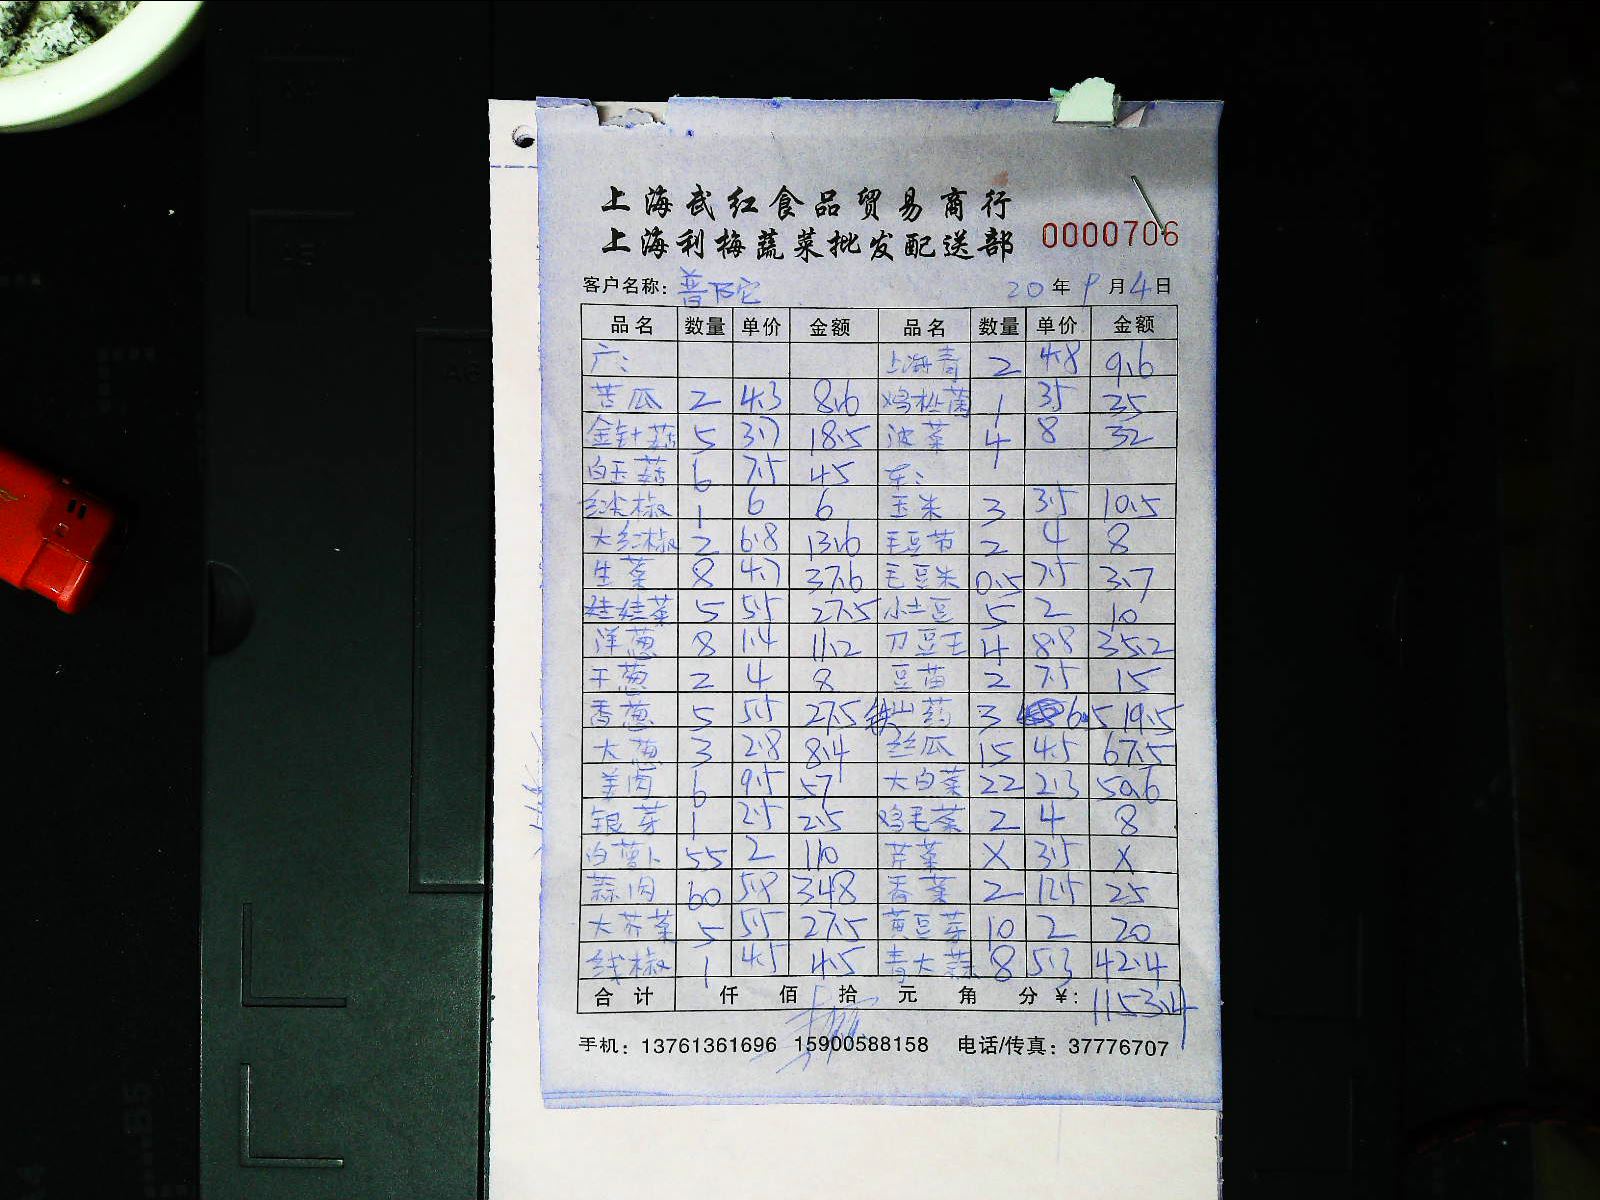 上海武红食品贸易商行
上海利梅蔬菜批发配送部
0000706
客户名称: 普陀 20年9月4日
品名 数量 单价 金额 品名 数量 单价 金额
广: 上海青 2 4.8 9.6
苦瓜 2 4.3 8.6 鸡枞菌 1 35 35
金针菇 5 3.7 18.5 波菜 4 8 32
白玉菇 6 7.5 45 车:
红尖椒 1 6 6 玉米 3 3.5 10.5
大红椒 2 6.8 13.6 毛豆节 2 4 8
生菜 8 4.7 37.6 毛豆米 0.5 7.5 3.7
娃娃菜 5 5.5 27.5 小土豆 5 2 10
洋葱 8 1.4 11.2 刀豆王 4 8.8 35.2
干葱 2 4 8 豆苗 2 7.5 15
香葱 5 5.5 27.5 铁山药 3 6.5 19.5
大葱 3 2.8 8.4 丝瓜 15 4.5 67.5
姜肉 6 9.5 57 大白菜 22 2.3 50.6
银芽 1 2.5 2.5 鸡毛菜 2 4 8
白萝卜 55 2 110 芹菜 X 3.5 X
蒜肉 60 5.8 348 香菜 2 12.5 25
大芥菜 5 5.5 27.5 黄豆芽 10 2 20
线椒 1 4.5 4.5 青大蒜 8 5.3 42.4
合计 仟 佰 拾 元 角 分 ¥: 1153.4
手机: 13761361696 15900588158 电话/传真: 37776707